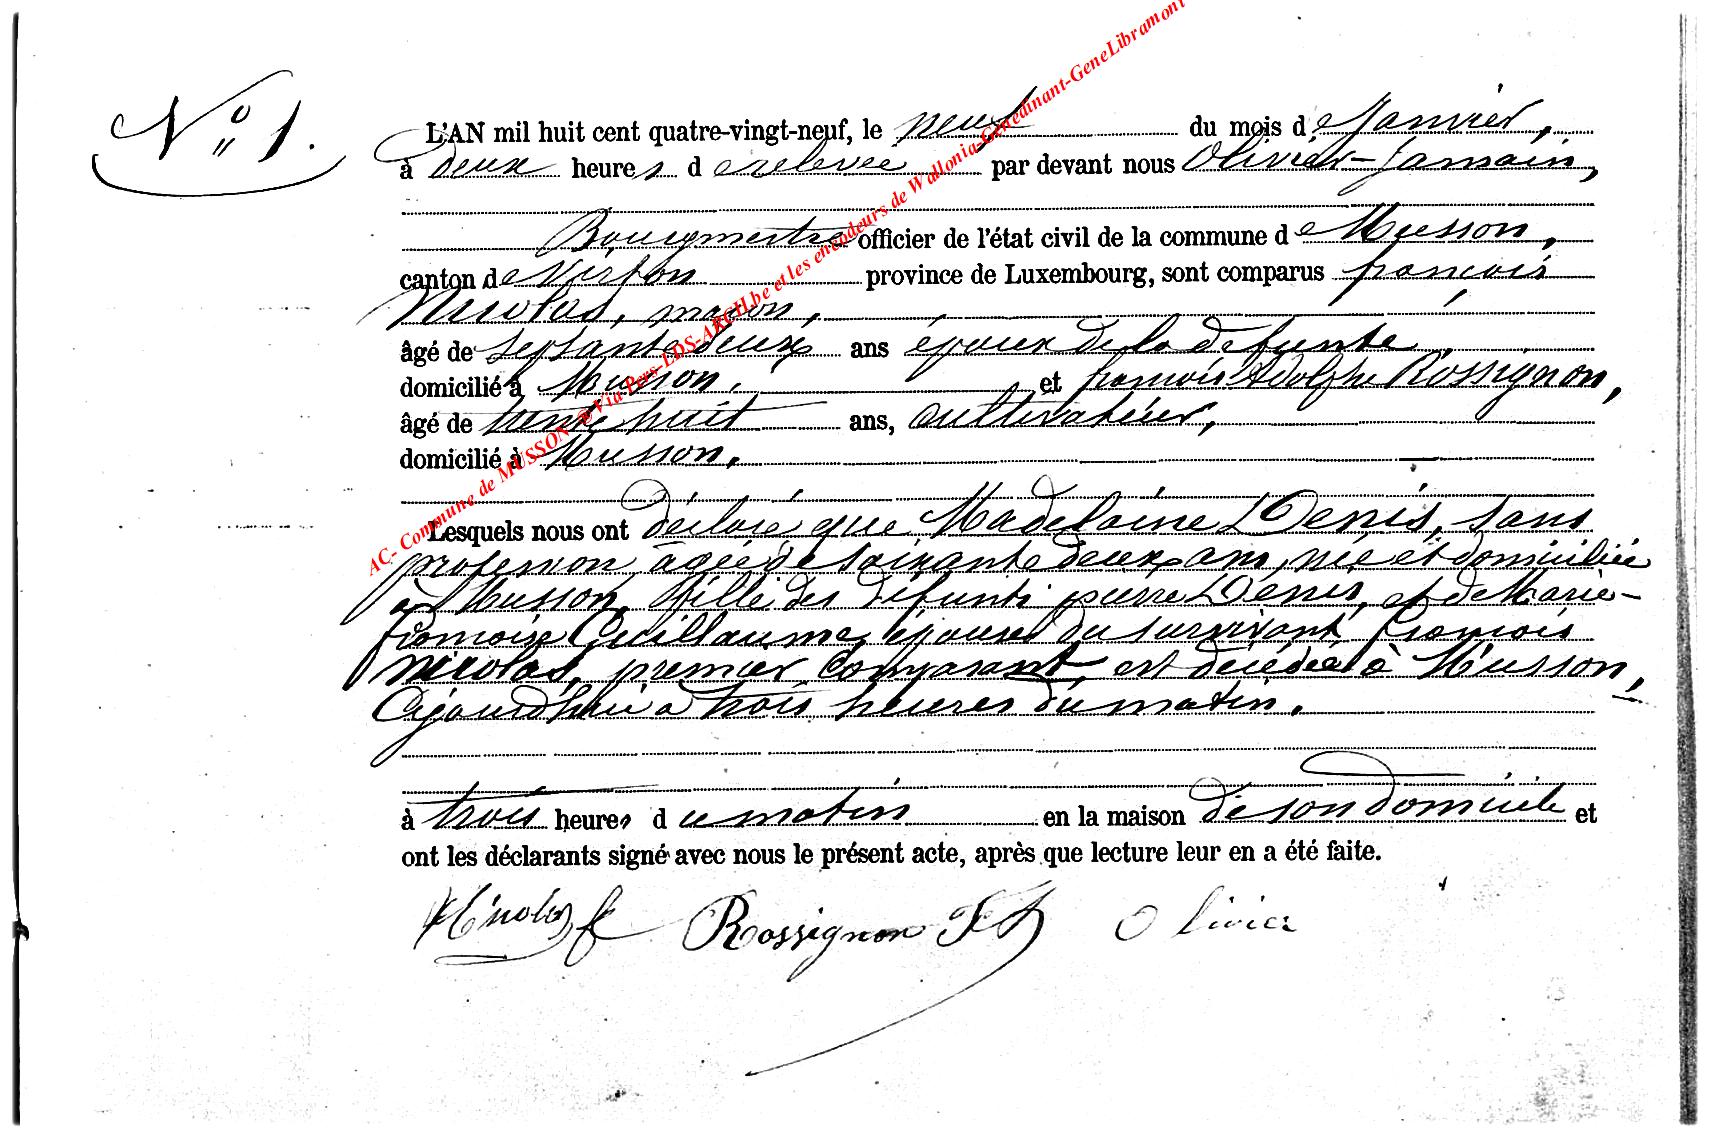 N° 1.
L'AN mil huit cent quatre-vingt-neuf, le neuf du mois de Janvier,
à deux heures de relevée par devant nous Olivier-Jamain,
Bourgmestre officier de l'état civil de la commune de Musson,
canton de Virton province de Luxembourg, sont comparus françois
Nicolas, maçon,
âgé de septante deux ans époux de la défunte,
domicilié à Musson, et françois Adolphe Rossignon,
âgé de trente huit ans, cultivateur,
domicilié à Musson,
Lesquels nous ont déclaré que Madelaine Denis, sans
profession, âgée de soixante deux ans, née et domiciliée
à Musson, fille des défunts pierre Denis, et de Marie-
françoise Guillaume, épouse du survivant françois
Nicolas, premier Comparant, est décédée à Musson,
Cejourd'hui à trois heures du matin.
à trois heures du matin en la maison de son domicile et
ont les déclarants signé avec nous le présent acte, après que lecture leur en a été faite.
Nicolas f Rossignon F A Olivier
AC- Commune de MUSSON @ Via Pers-LDS-ARCH.be et les encodeurs de Wallonia-Genedinant-GeneLibramont